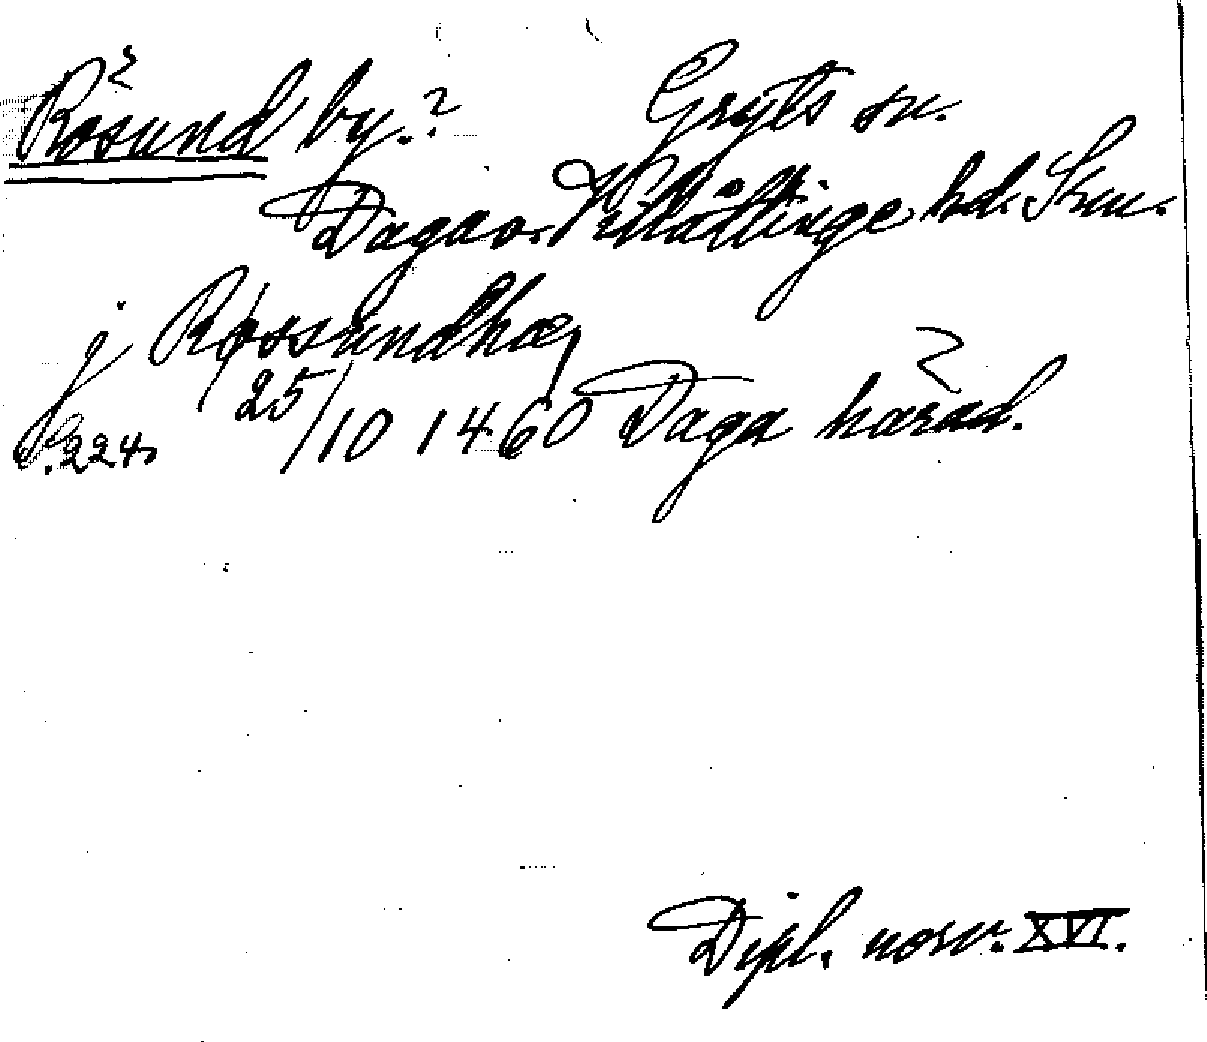 Rosund by.? Gryts sn.
Daga o. Villåttinge hd. Srm.
j Røssundhæ
S. 224. 25/10 1460 Daga härad.
Dipl. norv. XVI.